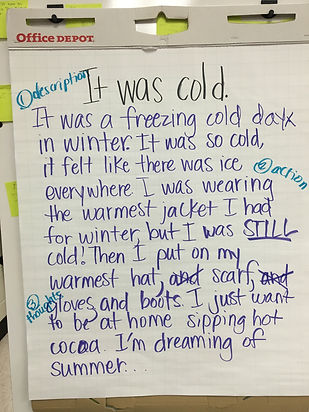 Office DEPOT
① description
It was cold.
It was a freezing cold day
in winter. It was so cold,
it felt like there was ice
② action
everywhere I was wearing
the warmest jacket I had
for winter, but I was STILL
cold! Then I put on my
warmest hat, and scarf, and
③ thoughts
gloves, and boots. I just want
to be at home sipping hot
cocoa. I'm dreaming of
summer...